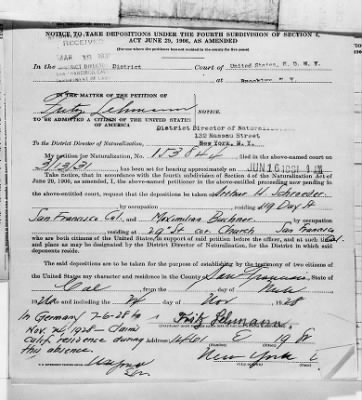 NOTICE TO TAKE DEPOSITIONS UNDER THE FOURTH SUBDIVISION OF SECTION 4,
ACT JUNE 29, 1906, AS AMENDED
RECEIVED
MAR 18
In the District Court of United States, E. D. N. Y.
at Brooklyn N.Y.
IN THE MATTER OF THE PETITION OF
Fritz Lehmann
NOTICE.
TO BE ADMITTED A CITIZEN OF THE UNITED STATES
OF AMERICA
District Director of
132 Nassau Street
To the District Director of Naturalization, New York, N. Y.
My petition for Naturalization, No. 153844 filed in the above-named court on
3/13/31, has been set for hearing approximately on JUN 16 1931
Take notice, that in accordance with the fourth subdivision of section 4 of the Naturalization Act of
June 29, 1906, as amended, I, the above-named petitioner in the above-entitled proceeding now pending in
the above-entitled court, request that the depositions be taken of Arthur H. Schroeder
by occupation residing at 219 Day St
San Francisco Cal. and Maximilian Buchner
by occupation residing at 29th St cor. Church San Francisco
who are both citizens of the United States, in support of said petition before the officer, and at such
date as may be designated by the District Director of Naturalization, for the District in which said
deponents reside.
The said depositions are to be taken for the purpose of establishing by the testimony of two citizens of
the United States my character and residence in the County San Francisco, State of
Cal, from the day of
1926 and including the 24 day of Nov 1928
In Germany 7-6-28 to Fritz Lehmann
Nov. 24, 1928 - Claims
Calif. residence during 144 61 E 19 St
this absence. New York